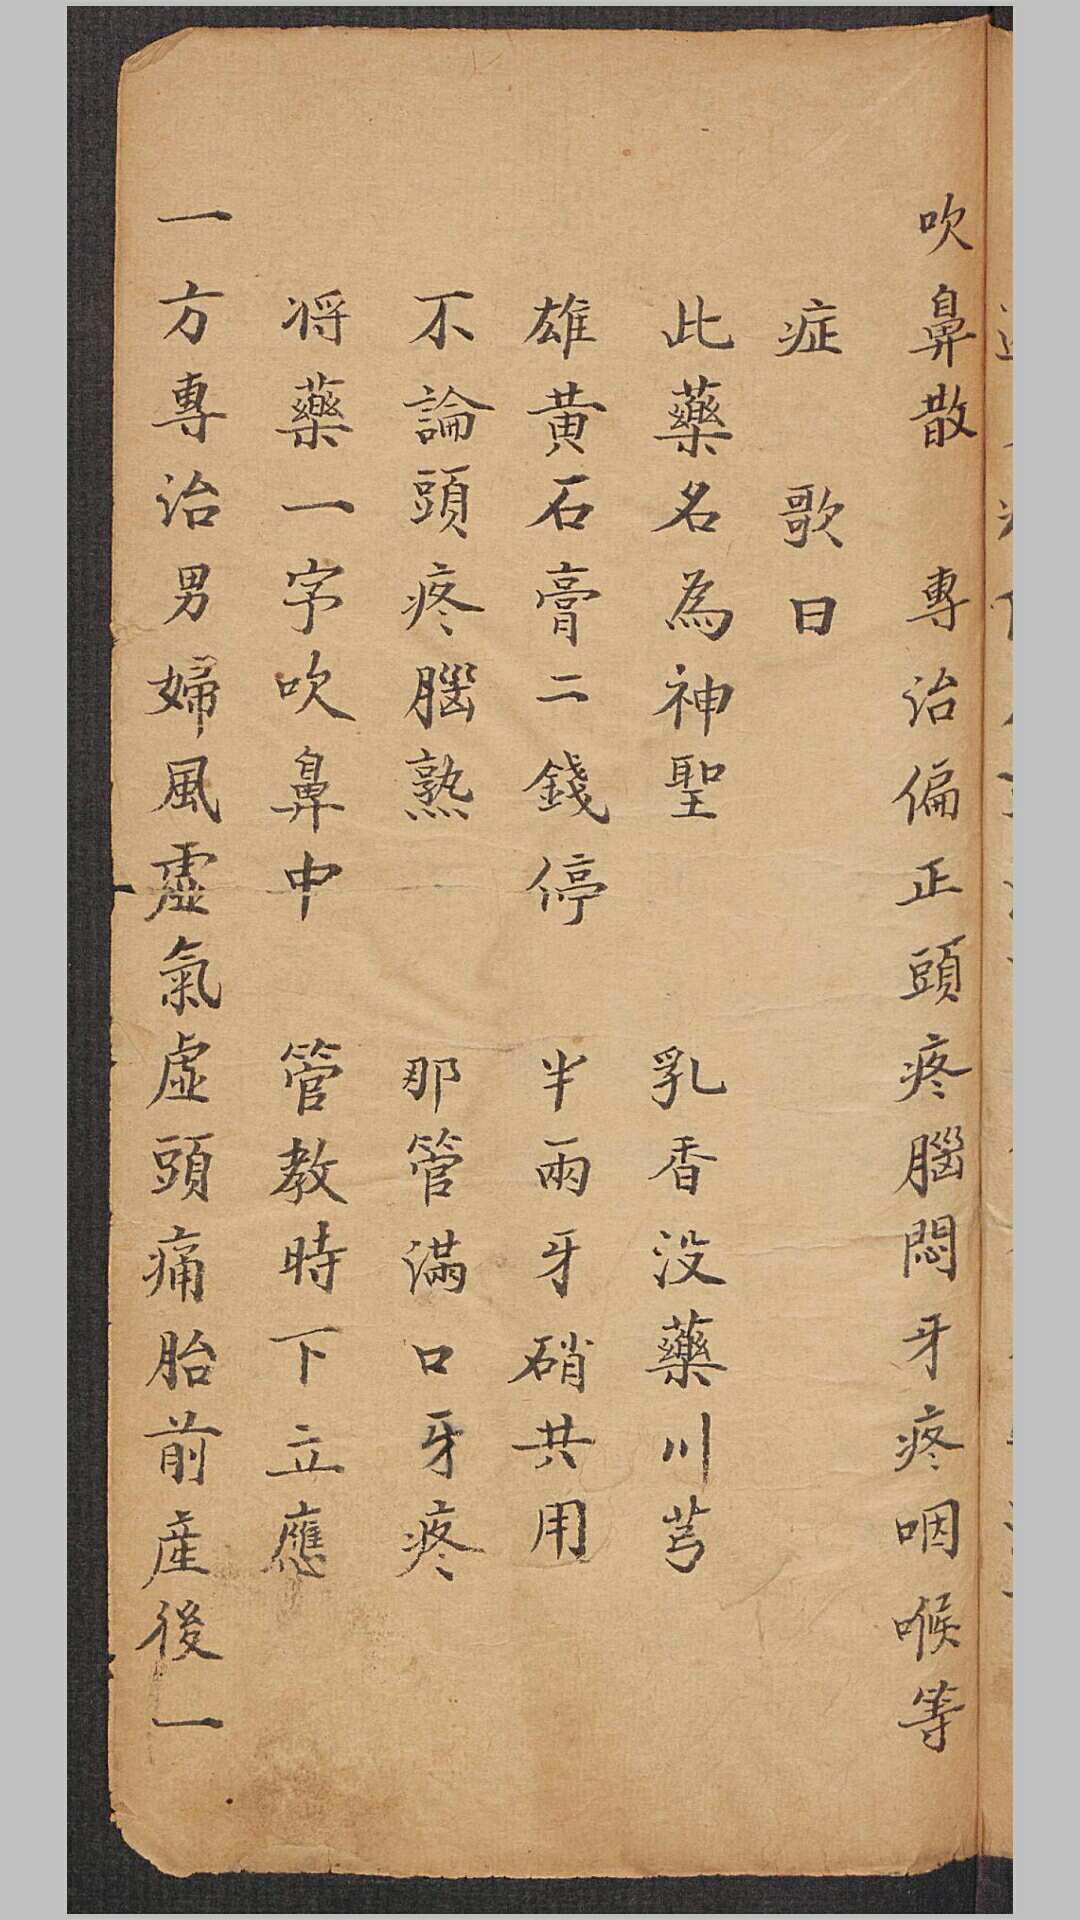 吹鼻散　專治偏正頭疼腦悶牙疼咽喉等
症　歌曰
此藥名為神聖　乳香没藥川芎
雄黄石膏二錢停　半兩牙硝共用
不論頭疼腦熱　那管滿口牙疼
将藥一字吹鼻中　管教時下立應
一方專治男婦風虛氣虛頭痛胎前産後一